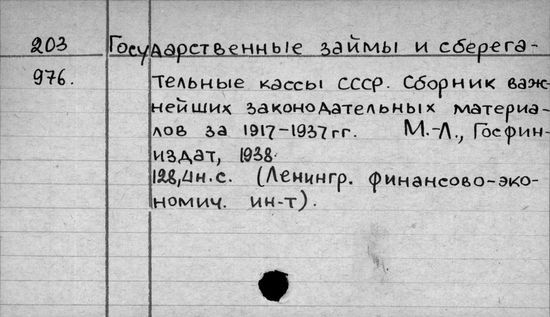 203 Государственные займы и сберега-
976. тельные кассы СССР. Сборник важ-
нейших законодательных материа-
лов за 1917-1937гг. М.-Л., Госфин-
издат, 1938.
128,4н.с. (Ленингр. финансово-эко-
номич. ин-т).